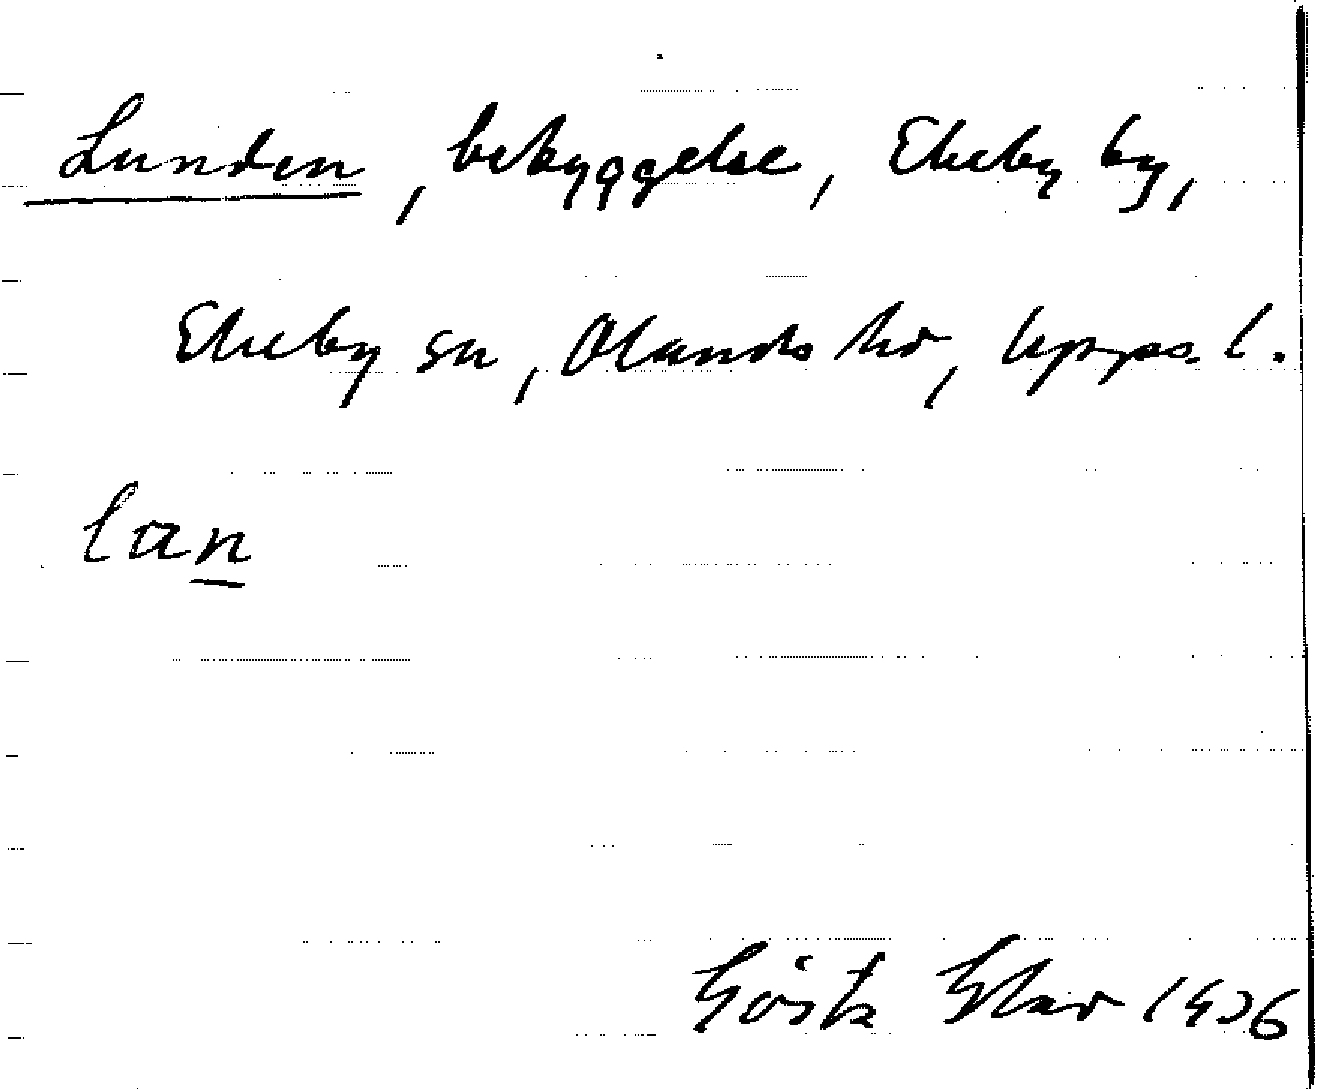 Lunden, bebyggelse, Ekeby by,
Ekeby sn, Olands hd, Uppsala l.
lan
Gösta 1936